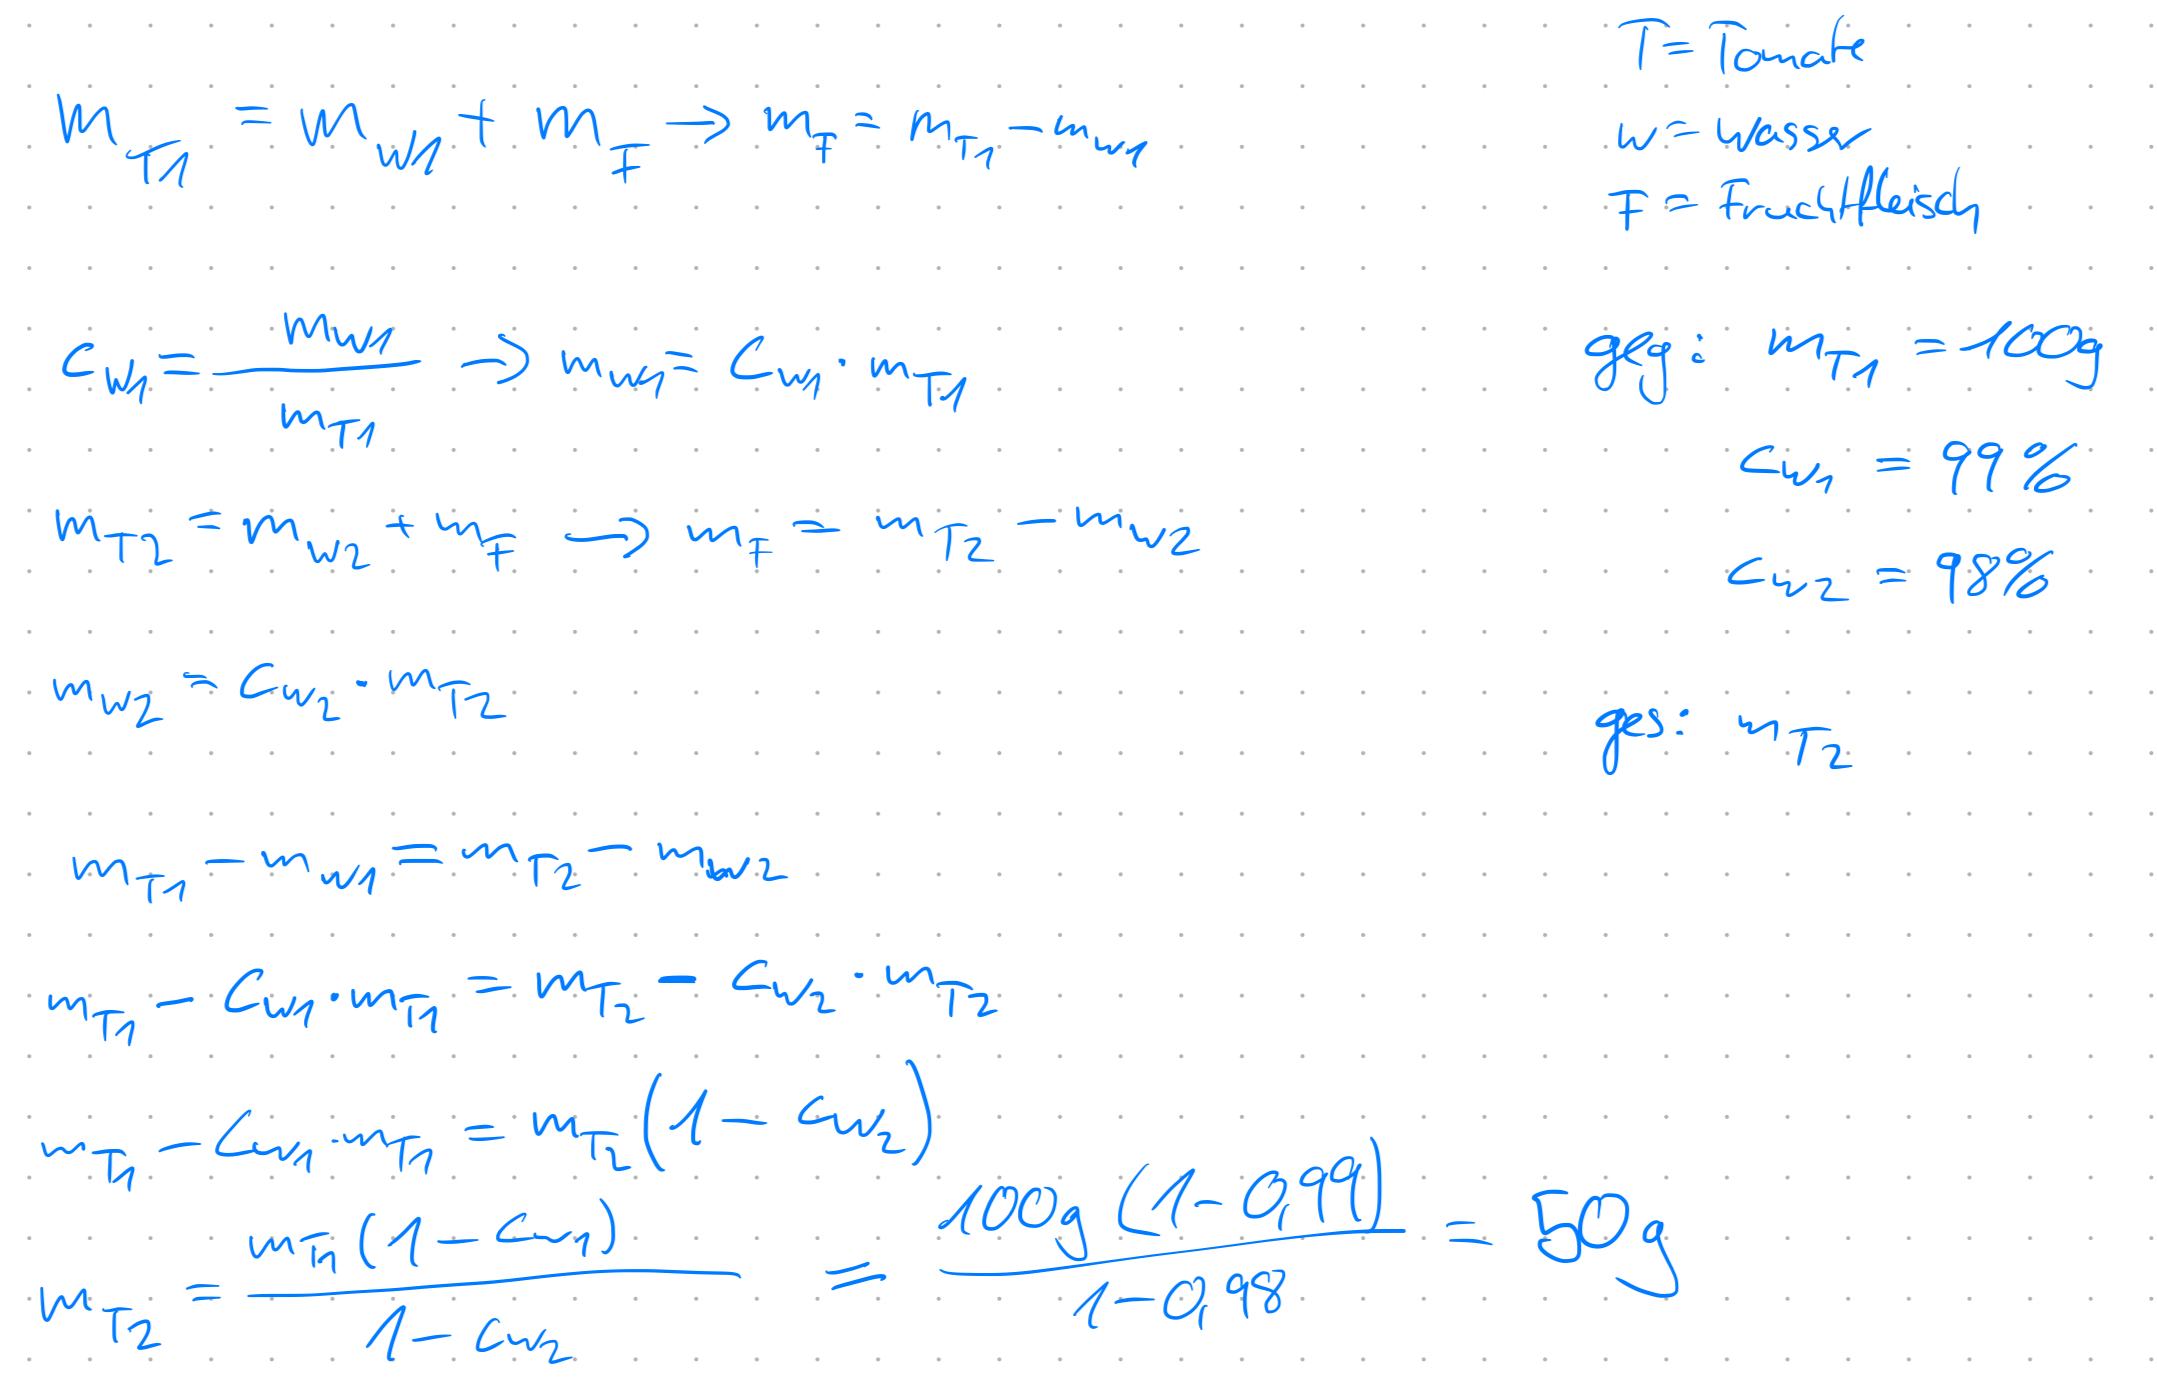 T = Tomate
w = Wasser
F = Fruchtfleisch
m_T1 = m_W1 + m_F → m_F = m_T1 − m_W1
c_W1 = m_W1 / m_T1 → m_W1 = c_W1 · m_T1
m_T2 = m_W2 + m_F → m_F = m_T2 − m_W2
m_W2 = c_W2 · m_T2
geg: m_T1 = 100g
c_W1 = 99%
c_W2 = 98%
ges: m_T2
m_T1 − m_W1 = m_T2 − m_W2
m_T1 − c_W1 · m_T1 = m_T2 − c_W2 · m_T2
m_T1 − c_W1 · m_T1 = m_T2 (1 − c_W2)
m_T2 = m_T1 (1 − c_W1) / 1 − c_W2 = 100g (1 − 0,99) / 1 − 0,98 = 50g